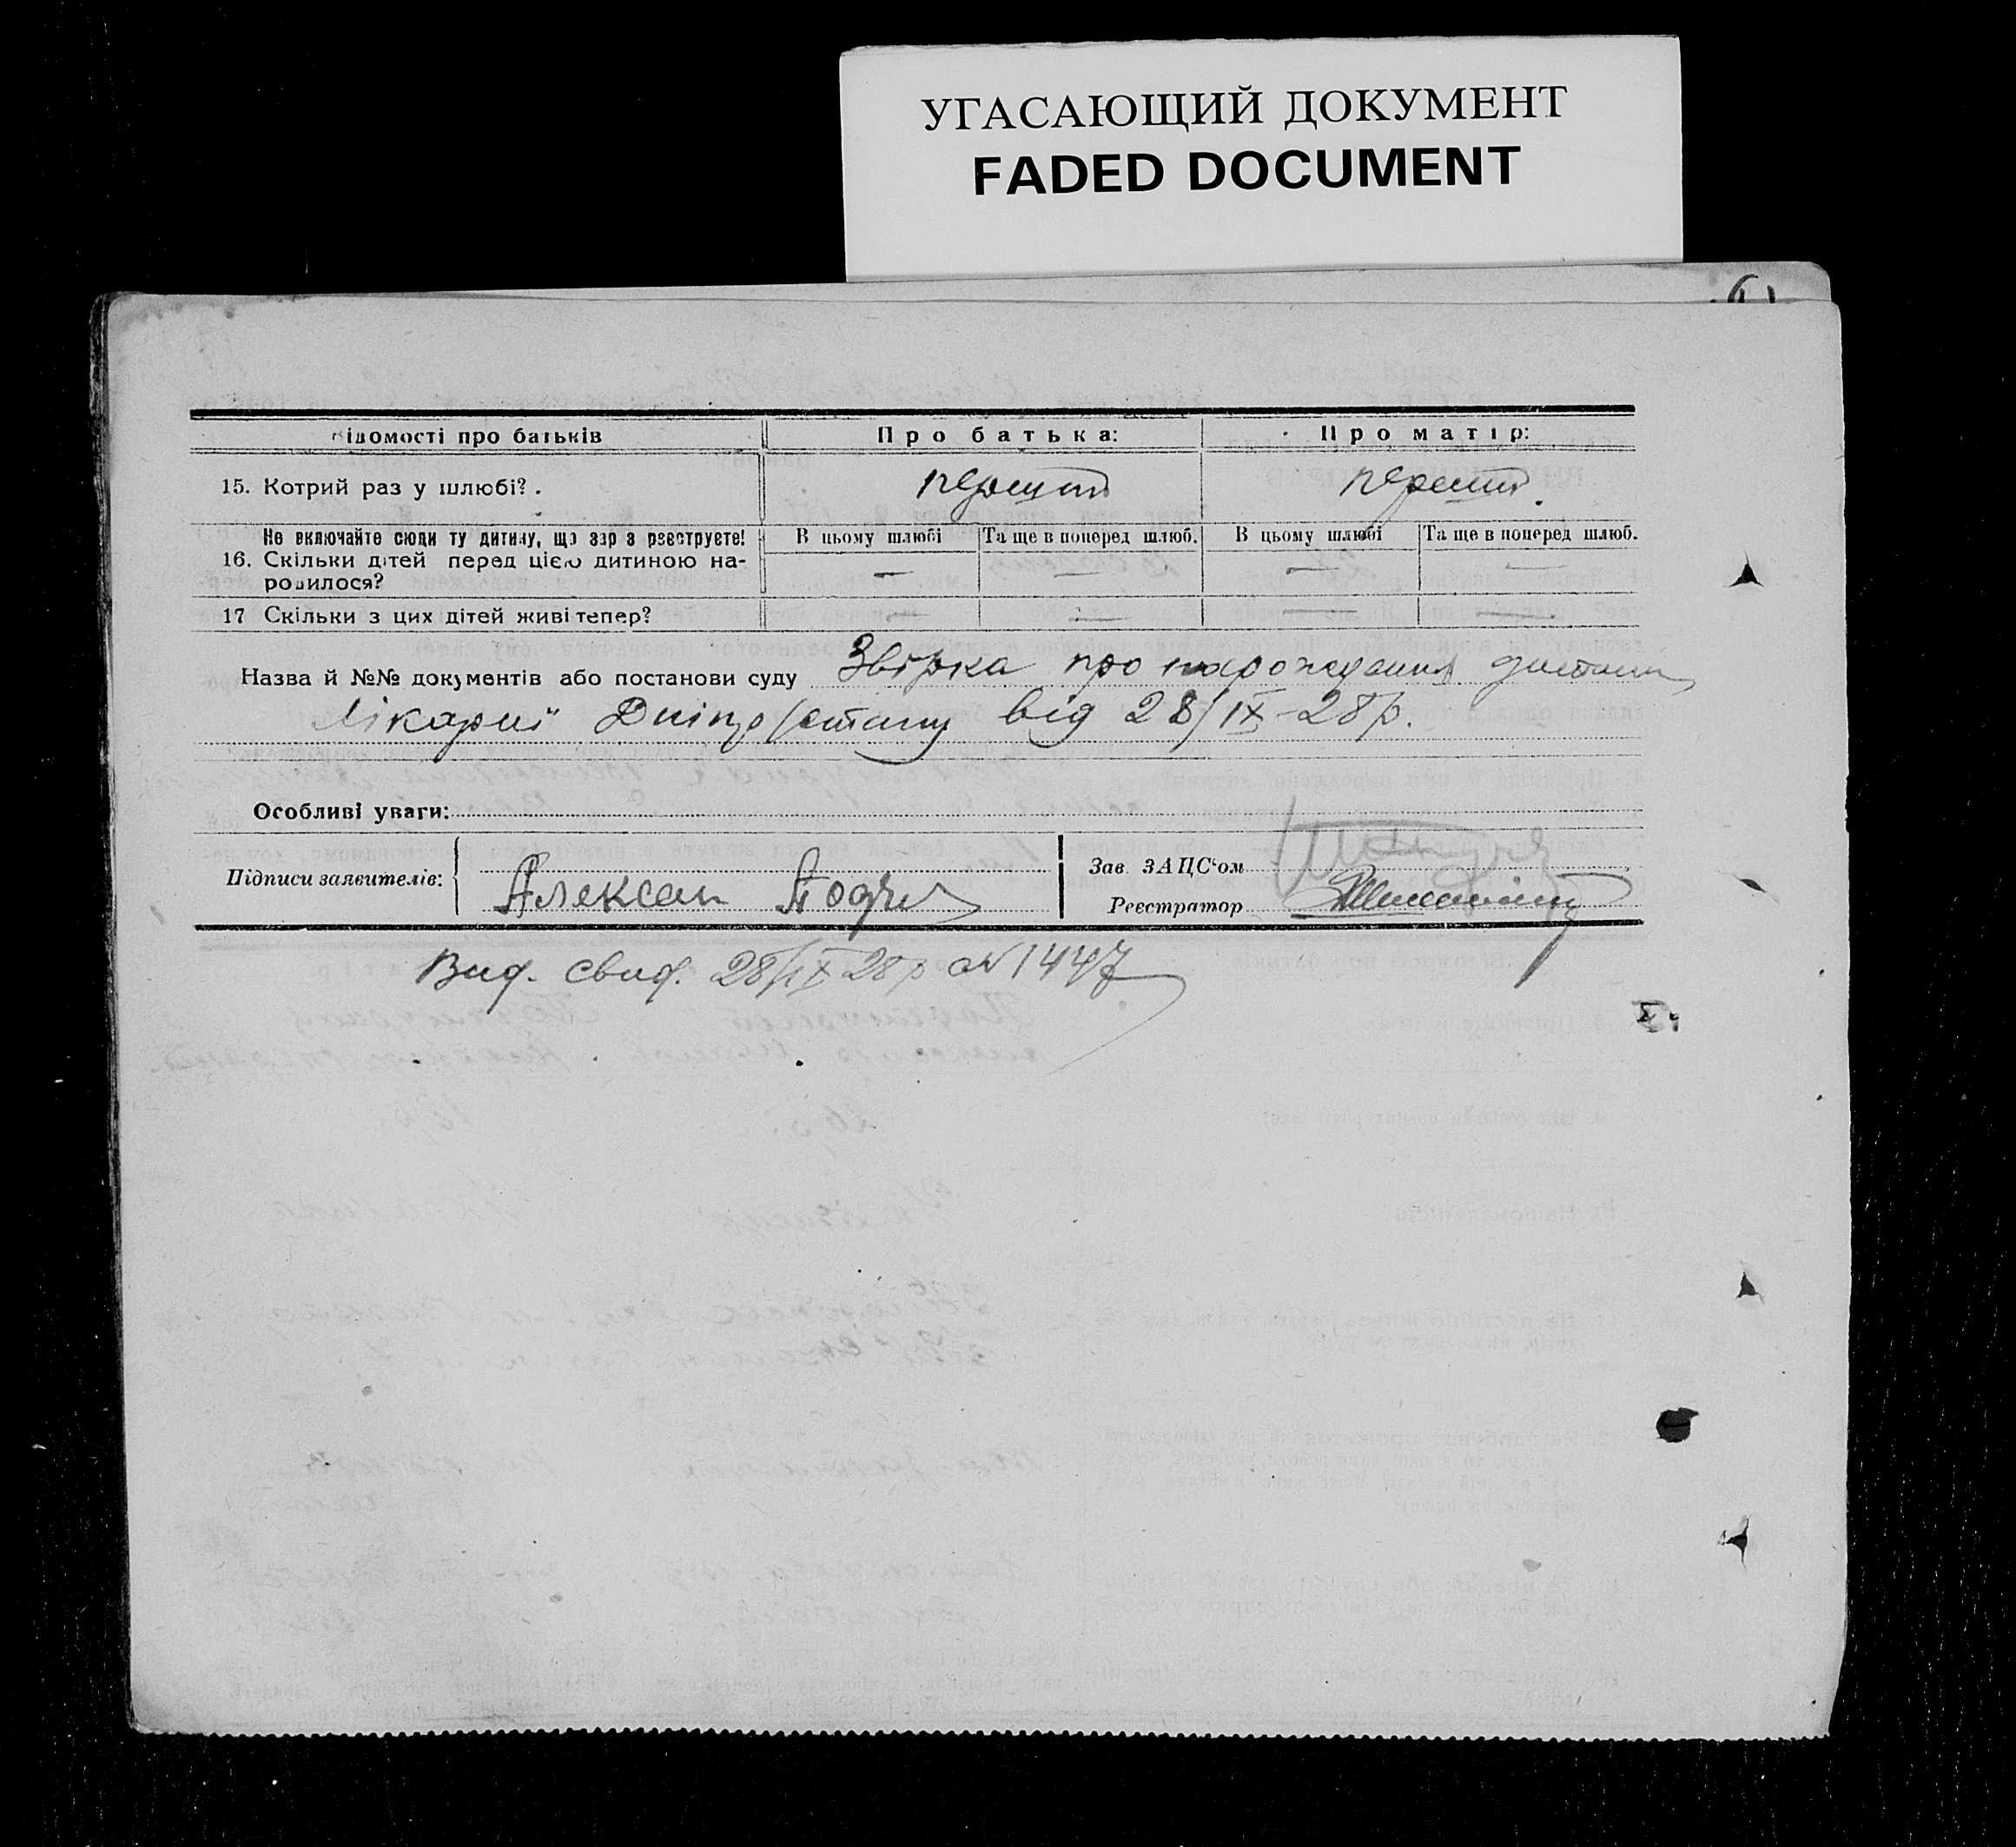 УГАСАЮЩИЙ ДОКУМЕНТ
FADED DOCUMENT
ідомості про батьків
Про батька:
Про матір:
15. Котрий раз у шлюбі?.
перший
перший
Не включайте сюди ту дитину, що зараз реєструєте!
16. Скільки дітей перед цією дитиною на-
родилося?
В цьому шлюбі
Та ще в поперед шлюб.
В цьому шлюбі
Та ще в поперед шлюб.
—
—
—
—
17 Скільки з цих дітей живі тепер?
—
—
—
—
Назва й №№ документів або постанови суду Звірка про нарождення дитини
Лікарні від 28/IX-28р.
Особливі уваги:
Підписи заявителів:
Алексан
Зав. ЗАЦС'ом
Реєстратор
Вид. свид. 28/IX 28р № 1447